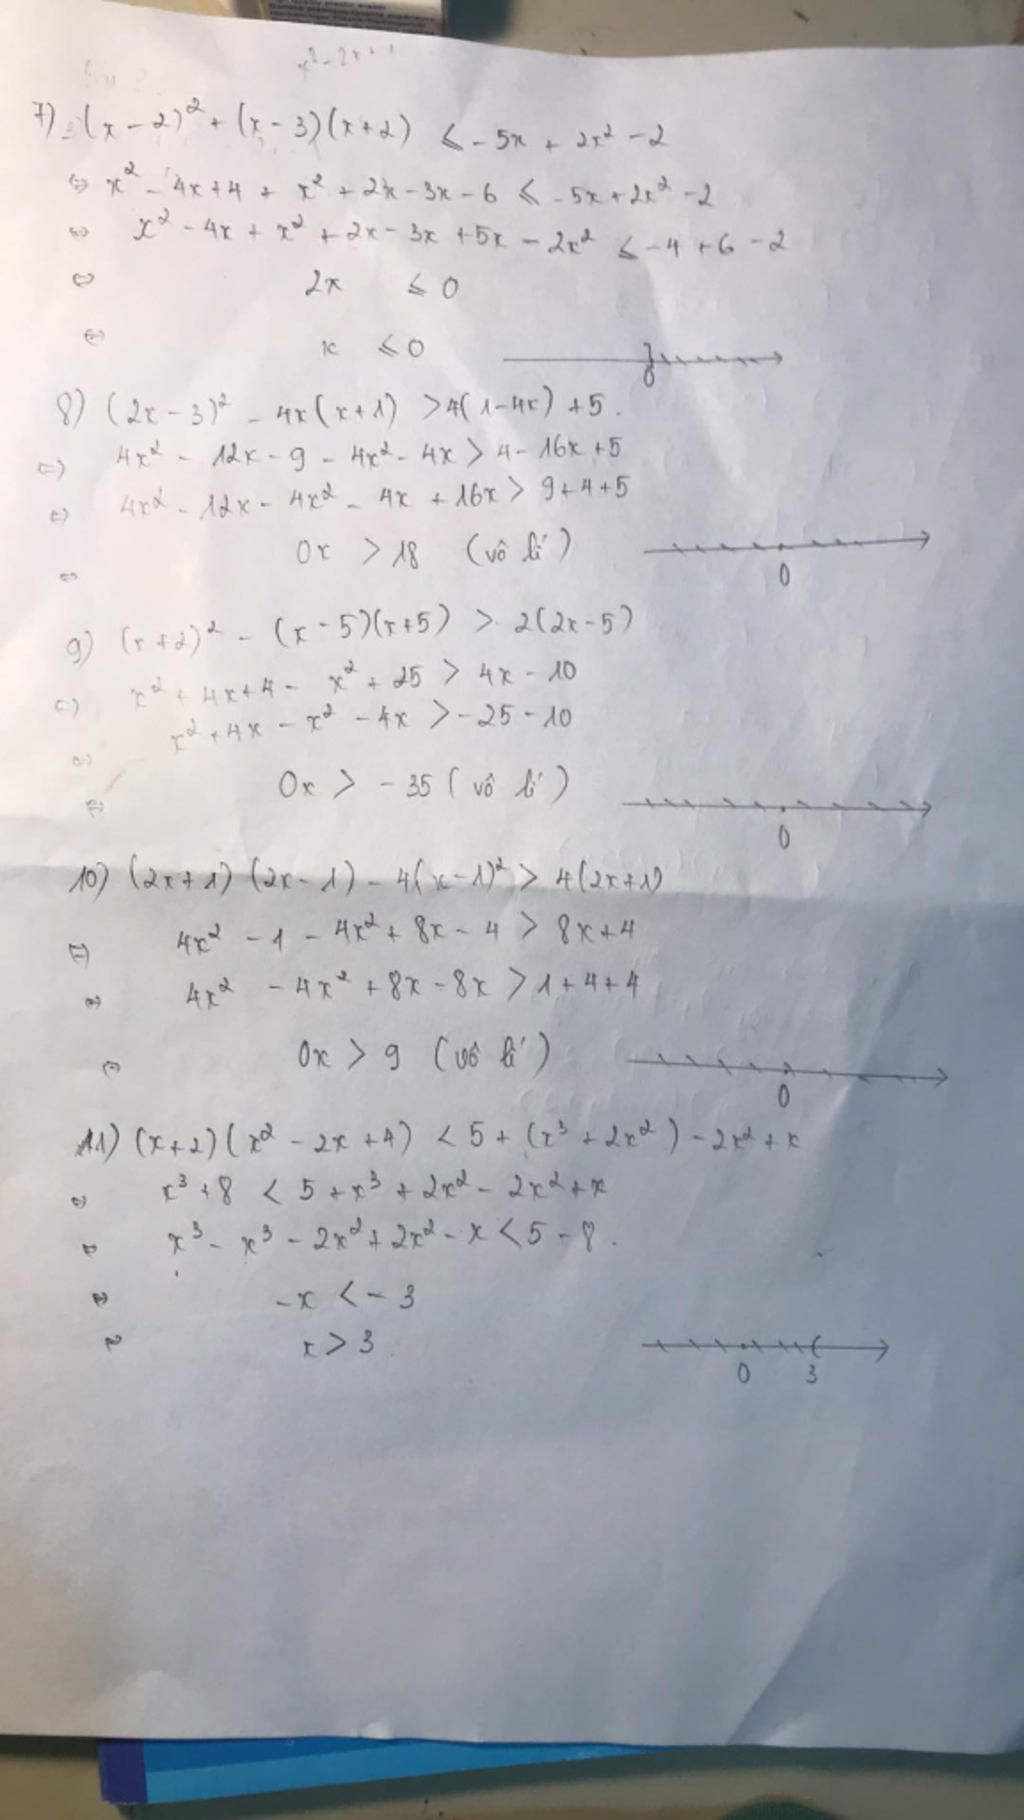 x² - 2x + 1
7) (x - 2)² + (x - 3)(x + 2) ≤ -5x + 2x² - 2
⇔ x² - 4x + 4 + x² + 2x - 3x - 6 ≤ -5x + 2x² - 2
⇔ x² - 4x + x² + 2x - 3x + 5x - 2x² ≤ -4 + 6 - 2
⇔ 2x ≤ 0
⇔ x ≤ 0
0
8) (2x - 3)² - 4x(x + 1) > 4(1 - 4x) + 5.
⇔ 4x² - 12x - 9 - 4x² - 4x > 4 - 16x + 5
⇔ 4x² - 12x - 4x² - 4x + 16x > 9 + 4 + 5
⇔ 0x > 18 (vô lí)
0
9) (x + 2)² - (x - 5)(x + 5) > 2(2x - 5)
⇔ x² + 4x + 4 - x² + 25 > 4x - 10
⇔ x² + 4x - x² - 4x > -25 - 10
⇔ 0x > -35 (vô lí)
0
10) (2x + 1)(2x - 1) - 4(x - 1)² > 4(2x + 1)
⇔ 4x² - 1 - 4x² + 8x - 4 > 8x + 4
⇔ 4x² - 4x² + 8x - 8x > 1 + 4 + 4
⇔ 0x > 9 (vô lí)
0
11) (x + 2)(x² - 2x + 4) < 5 + (x³ + 2x²) - 2x² + x
⇔ x³ + 8 < 5 + x³ + 2x² - 2x² + x
⇔ x³ - x³ - 2x² + 2x² - x < 5 - 8.
⇔ -x < -3
⇔ x > 3.
0 3